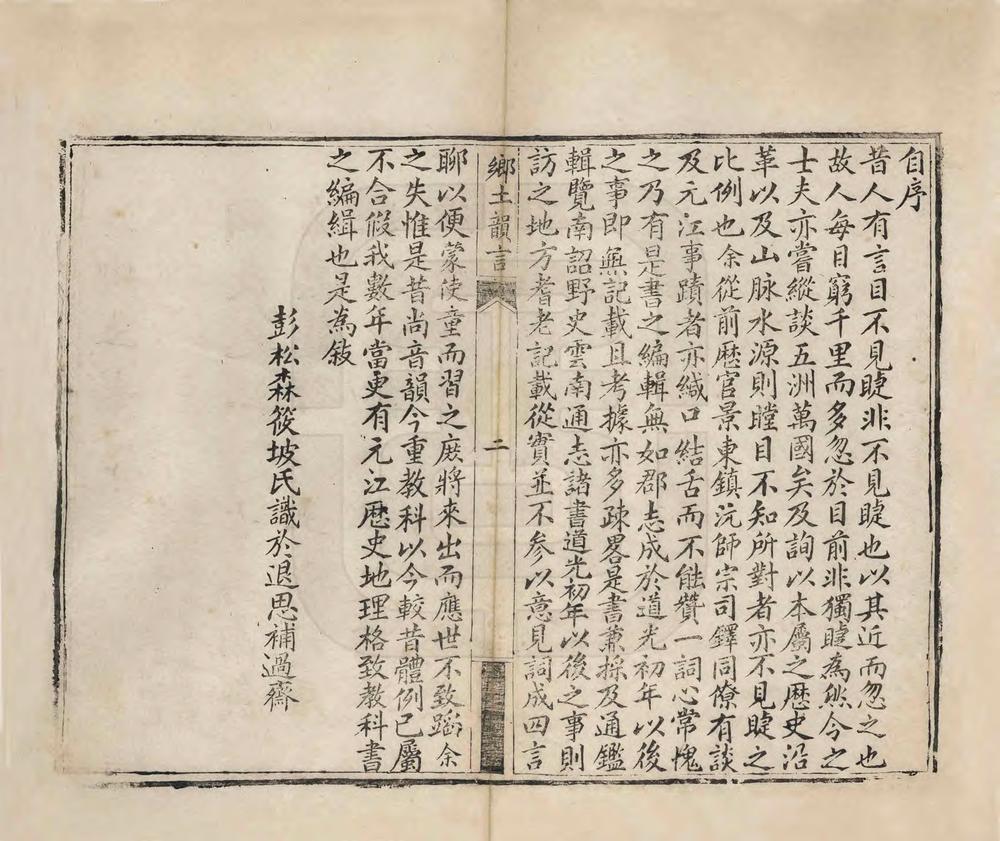 自序
昔人有言目不見睫非不見睫也以其近而忽之也
故人每目窮千里而多忽於目前非獨睫為然今之
士夫亦嘗縱談五洲萬國矣及詢以本屬之歷史沿
革以及山脉水源則瞠目不知所對者亦不見睫之
比例也余從前歷官景東鎮沅師宗司鐸同僚有談
及元江事蹟者亦緘口結舌而不能贊一詞心常愧
之乃有是書之編輯無如郡志成於道光初年以後
之事即無記載且考據亦多疎畧是書兼採及通鑑
輯覽南詔野史雲南通志諸書道光初年以後之事則
訪之地方耆老記載從實並不參以意見詞成四言
鄉土韻言
二
聊以便蒙使童而習之庶將來出而應世不致蹈余
之失惟是昔尚音韻今重教科以今較昔體例已屬
不合假我數年當更有元江歷史地理格致教科書
之編緝也是為敘
彭松森筱坡氏識於退思補過齋